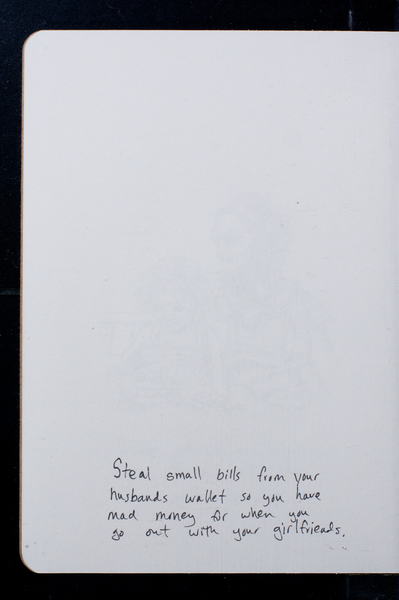 Steal small bills from your
husbands wallet so you have
mad money for when you
go out with your girlfriends.